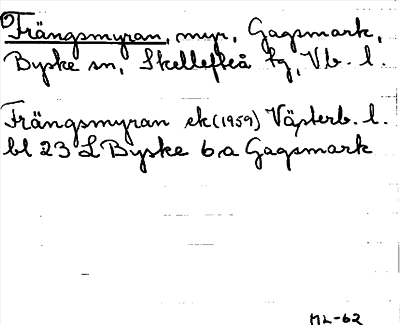 Frängsmyran, myr, Gagsmark,
Byske sn, Skellefteå tg, Vb. l.
Frängsmyran ek (1959) Västerb. l.
bl 23 L Byske 6a Gagsmark
ML-62